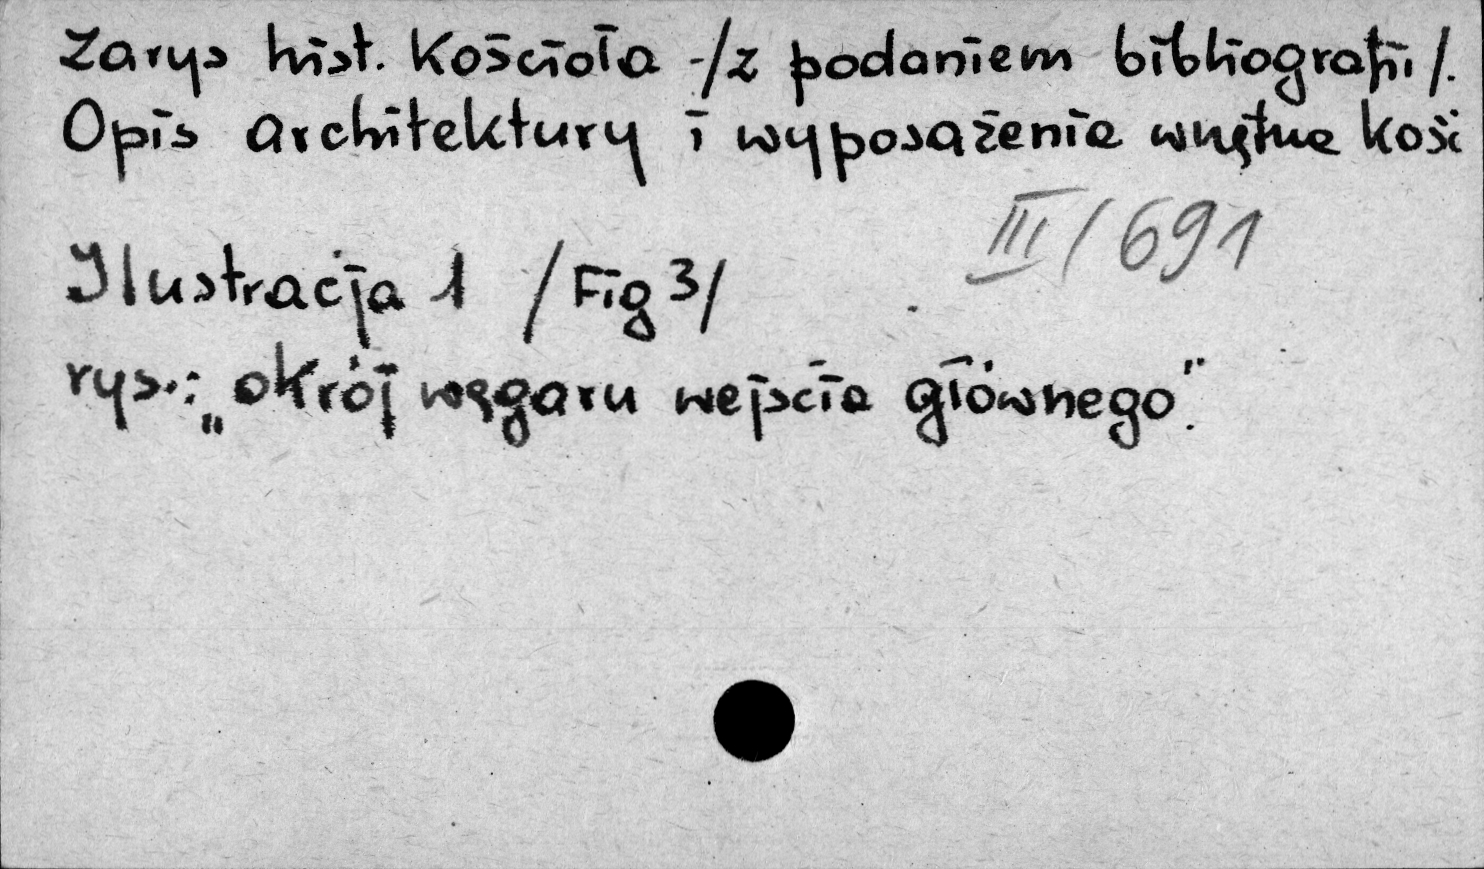 Zarys hist. Kościoła -/z podaniem bibliografii/.
Opis architektury i wyposażenie wnętrze kości
III/691
Ilustracja 1 /Fig 3/
rys.: „okrój węgaru wejścia głównego".